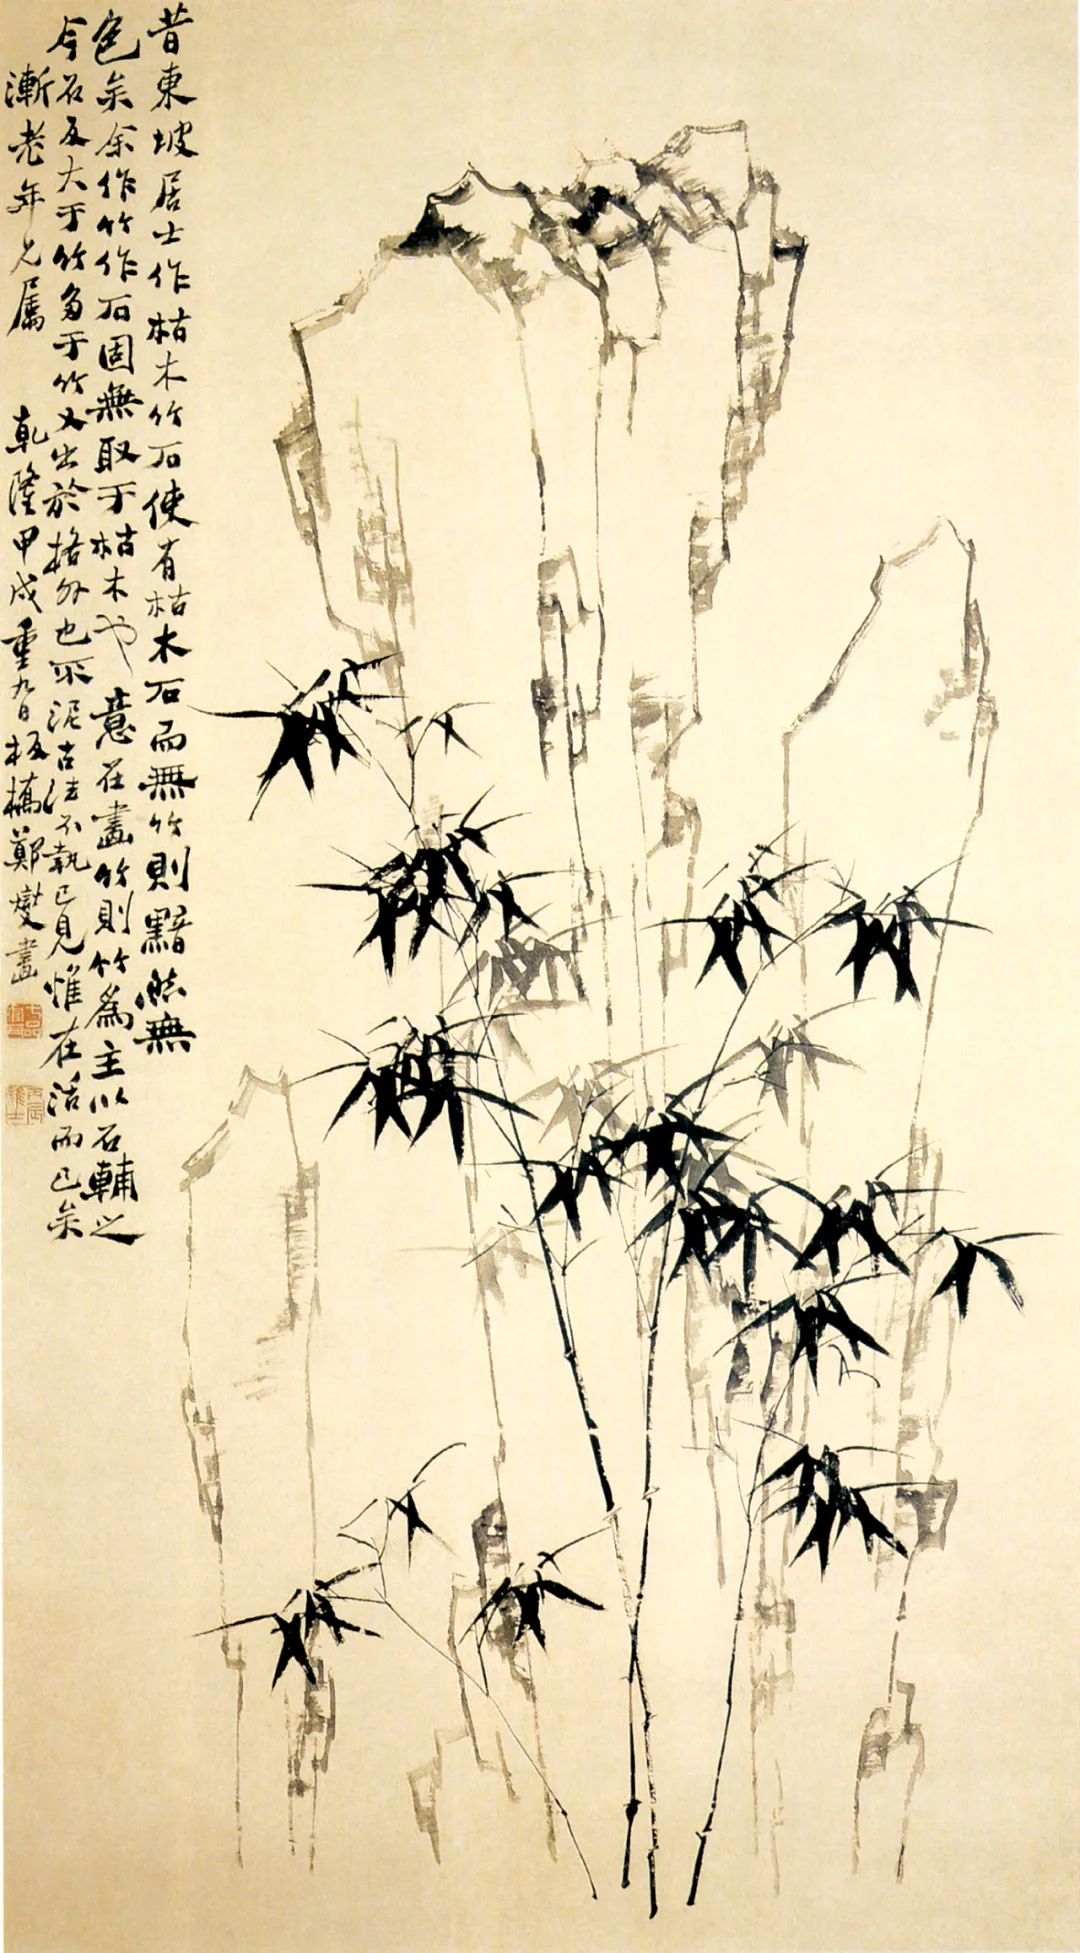 昔東坡居士作枯木竹石使有枯木石而無竹則黯然無
色矣余作竹作石固無取于枯木也意在畫竹則竹爲主以石輔之
今石反大于竹多于竹又出於格外也不泥古法不執己見惟在活而已矣
漸老年兄屬 乾隆甲戌重九日板橋鄭燮畫